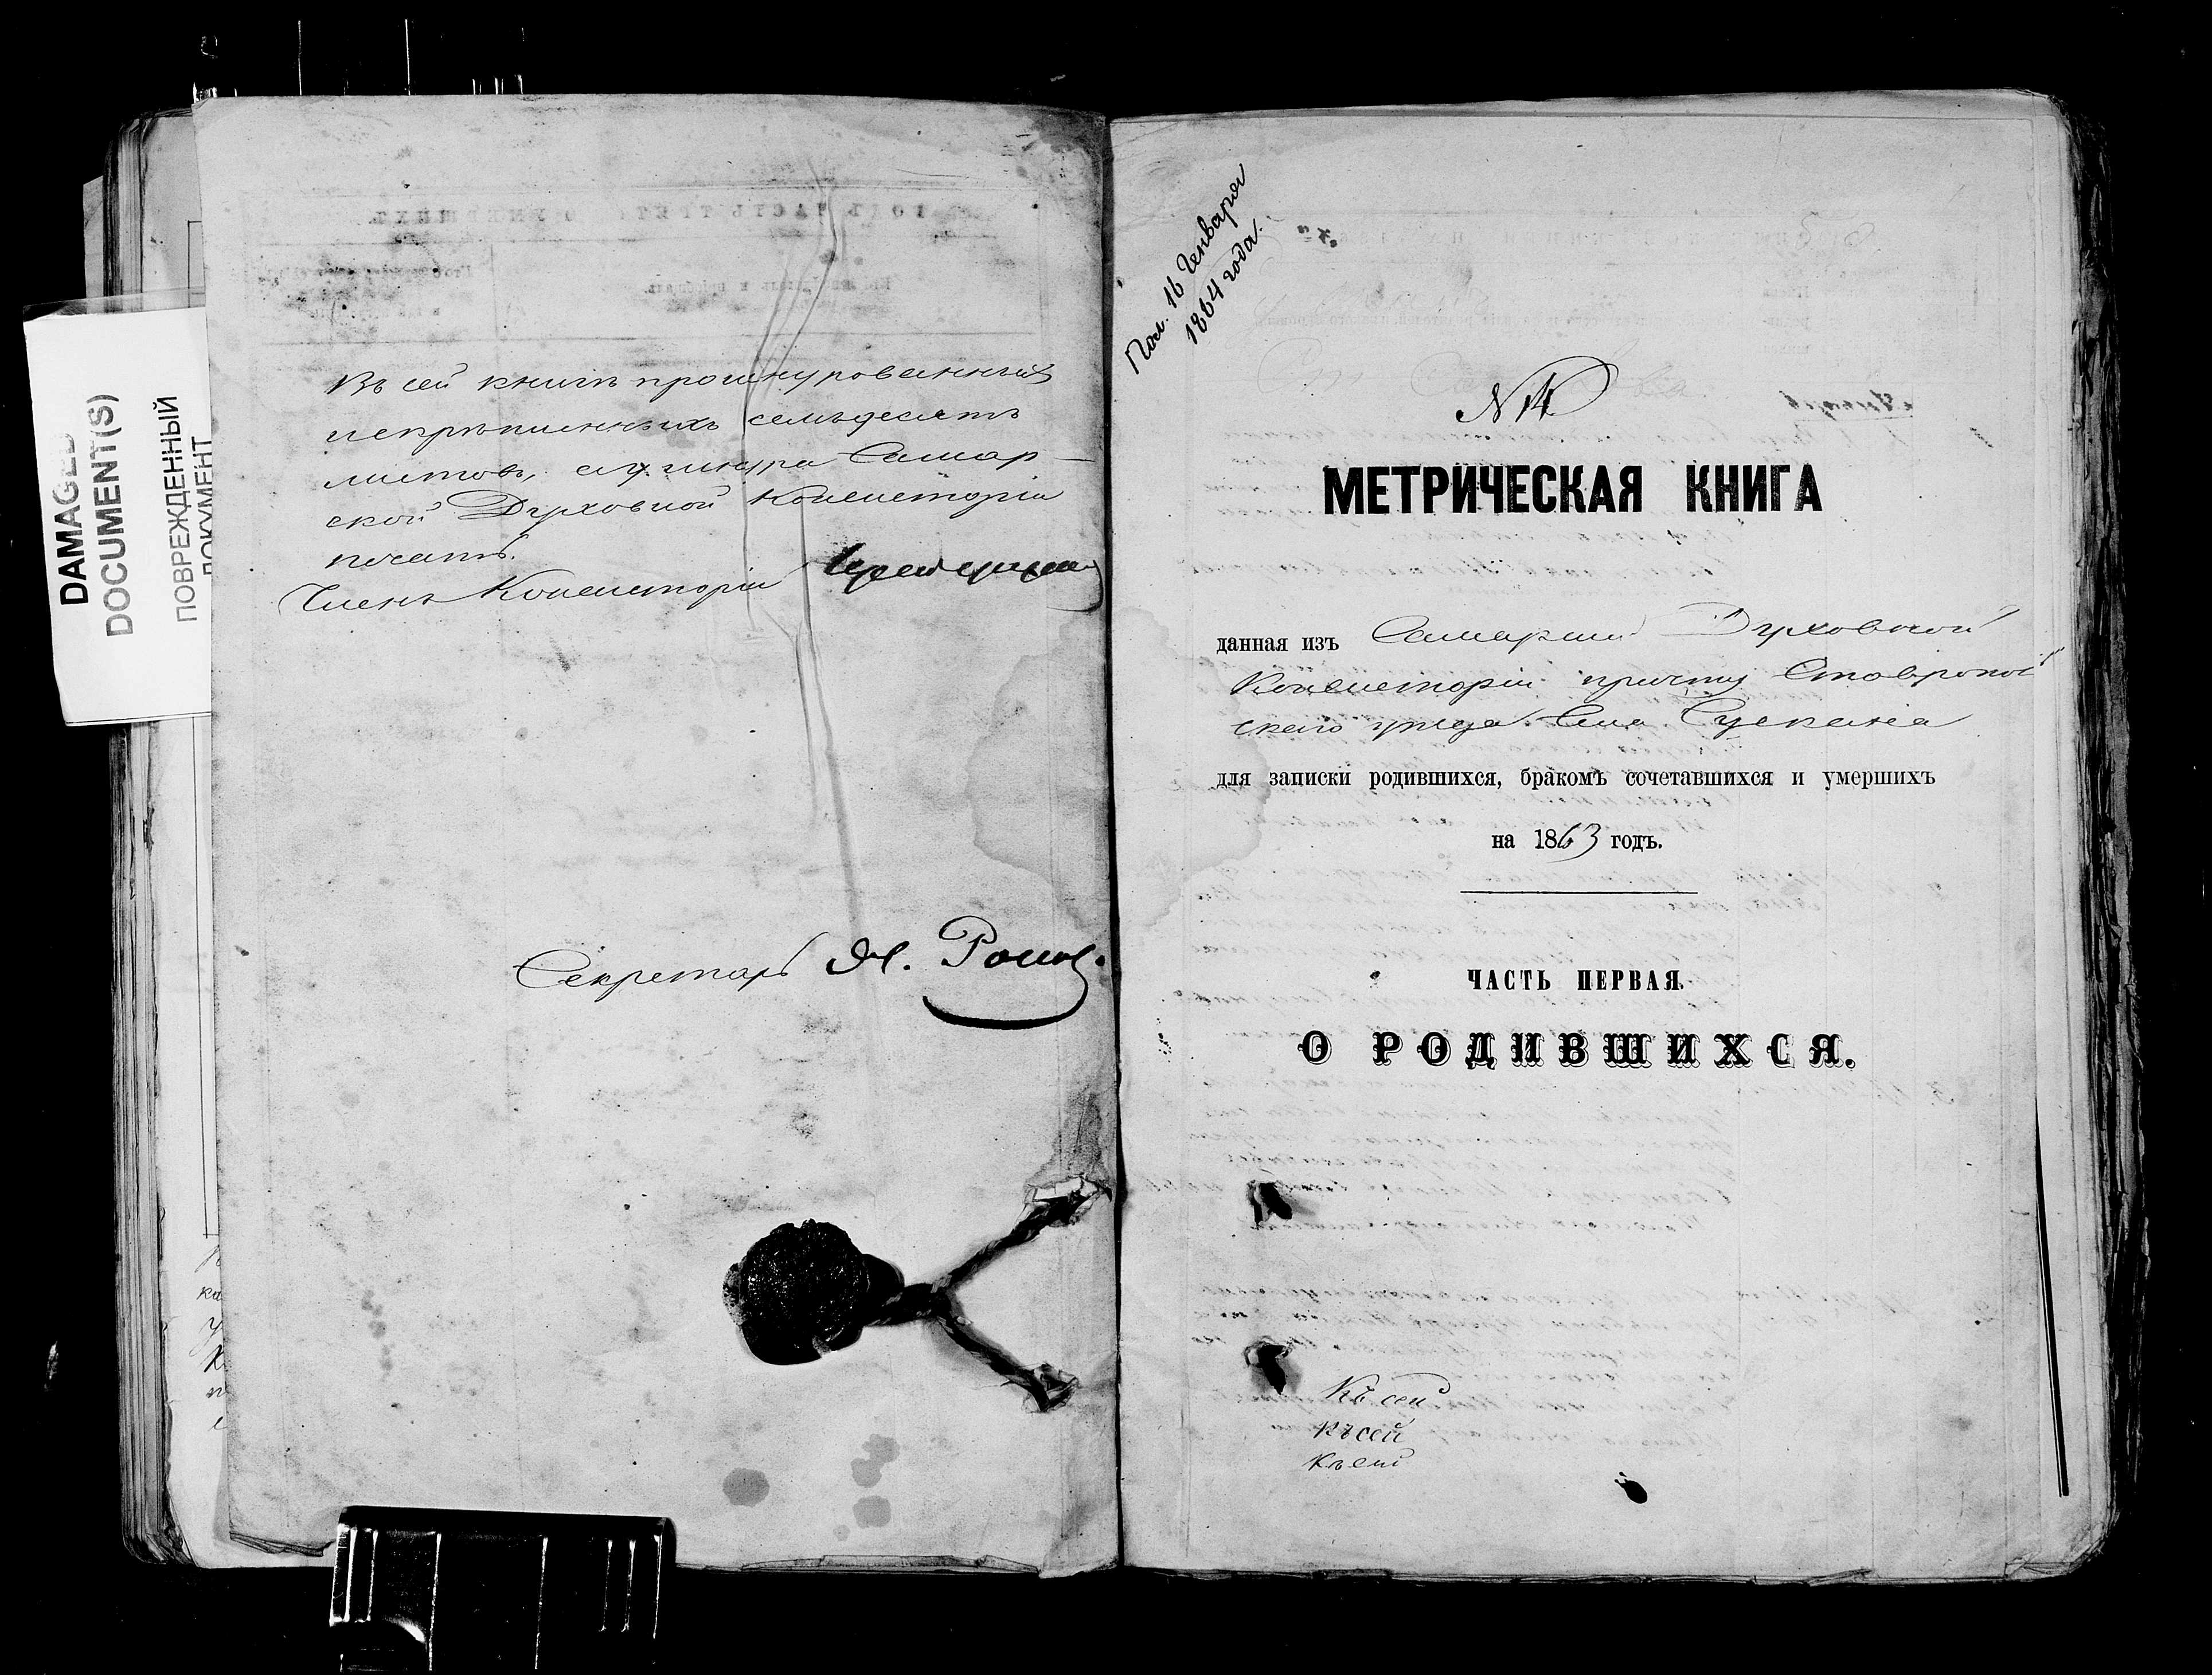 DAMAGED
DOCUMENT(S)
ПОВРЕЖДЕННЫЙ
ДОКУМЕНТ
Въ сей книгѣ прошнурованныхъ
и скрѣпленныхъ семьдесятъ
листовъ, и у шнура Самар-
ской Духовной Консисторіи
печать.
Членъ Консисторіи
Секретарь
Пол. 16 Генваря
1864 года.
N 14
МЕТРИЧЕСКАЯ КНИГА
данная изъ Самарской Духовной
Консисторіи причту Ставрополь
скаго уѣзда Села Сускана
для записки родившихся, бракомъ сочетавшихся и умершихъ
на 1863 годъ.
ЧАСТЬ ПЕРВАЯ.
О РОДИВШИХСЯ.
Къ сей
Къ сей
Къ сей